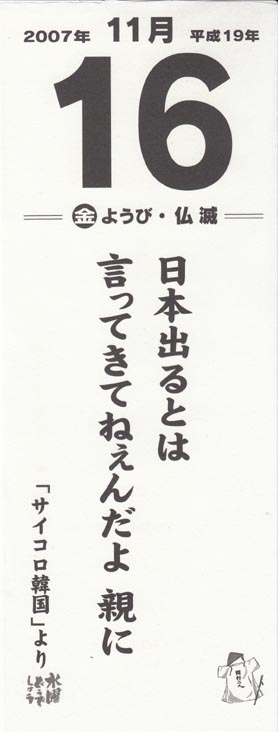 2007年 11月 平成19年
16
金ようび・仏滅
日本出るとは
言ってきてねぇんだよ 親に
「サイコロ韓国」より
水曜
どうで
しょう